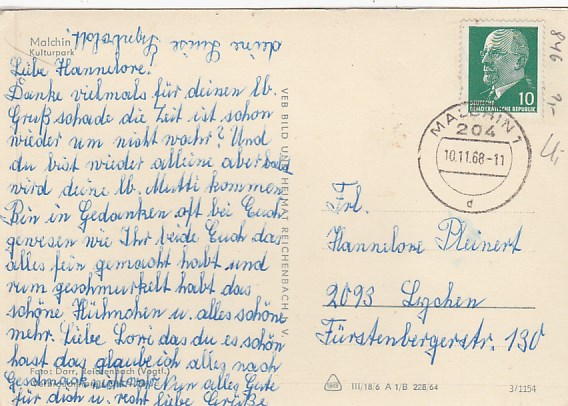 deine Luise
Malchin
Kulturpark
Liebe Hannelore!
Danke vielmals für deinen lb.
Gruß schade die Zeit ist schon
wieder um nicht wahr? Und
du bist wieder alleine aber bald
wird deine lb. Mutti kommen
Bin in Gedanken oft bei Euch
gewesen wie Ihr beide Euch das
alles fein gemacht habt und
rum geschmurkelt habt das
schöne Hühnchen u. alles schöne
mehr. Liebe Lori das du es schön
hast das glaube ich alles nach
Foto: Darr, Reichenbach (Vogtl.)
Geschmack alles Gute
für dich u. recht liebe Grüße
VEB BILD UND HEIMAT REICHENBACH I. V.
10
DEUTSCHE
DEMOKRATISCHE REPUBLIK
MALCHIN 1
204
10.11.68-11
d
846
Frl.
Hannelore Pleinert
2093 Lychen
Fürstenbergerstr. 130
III/18/6 A 1/B 228/64
3/1154